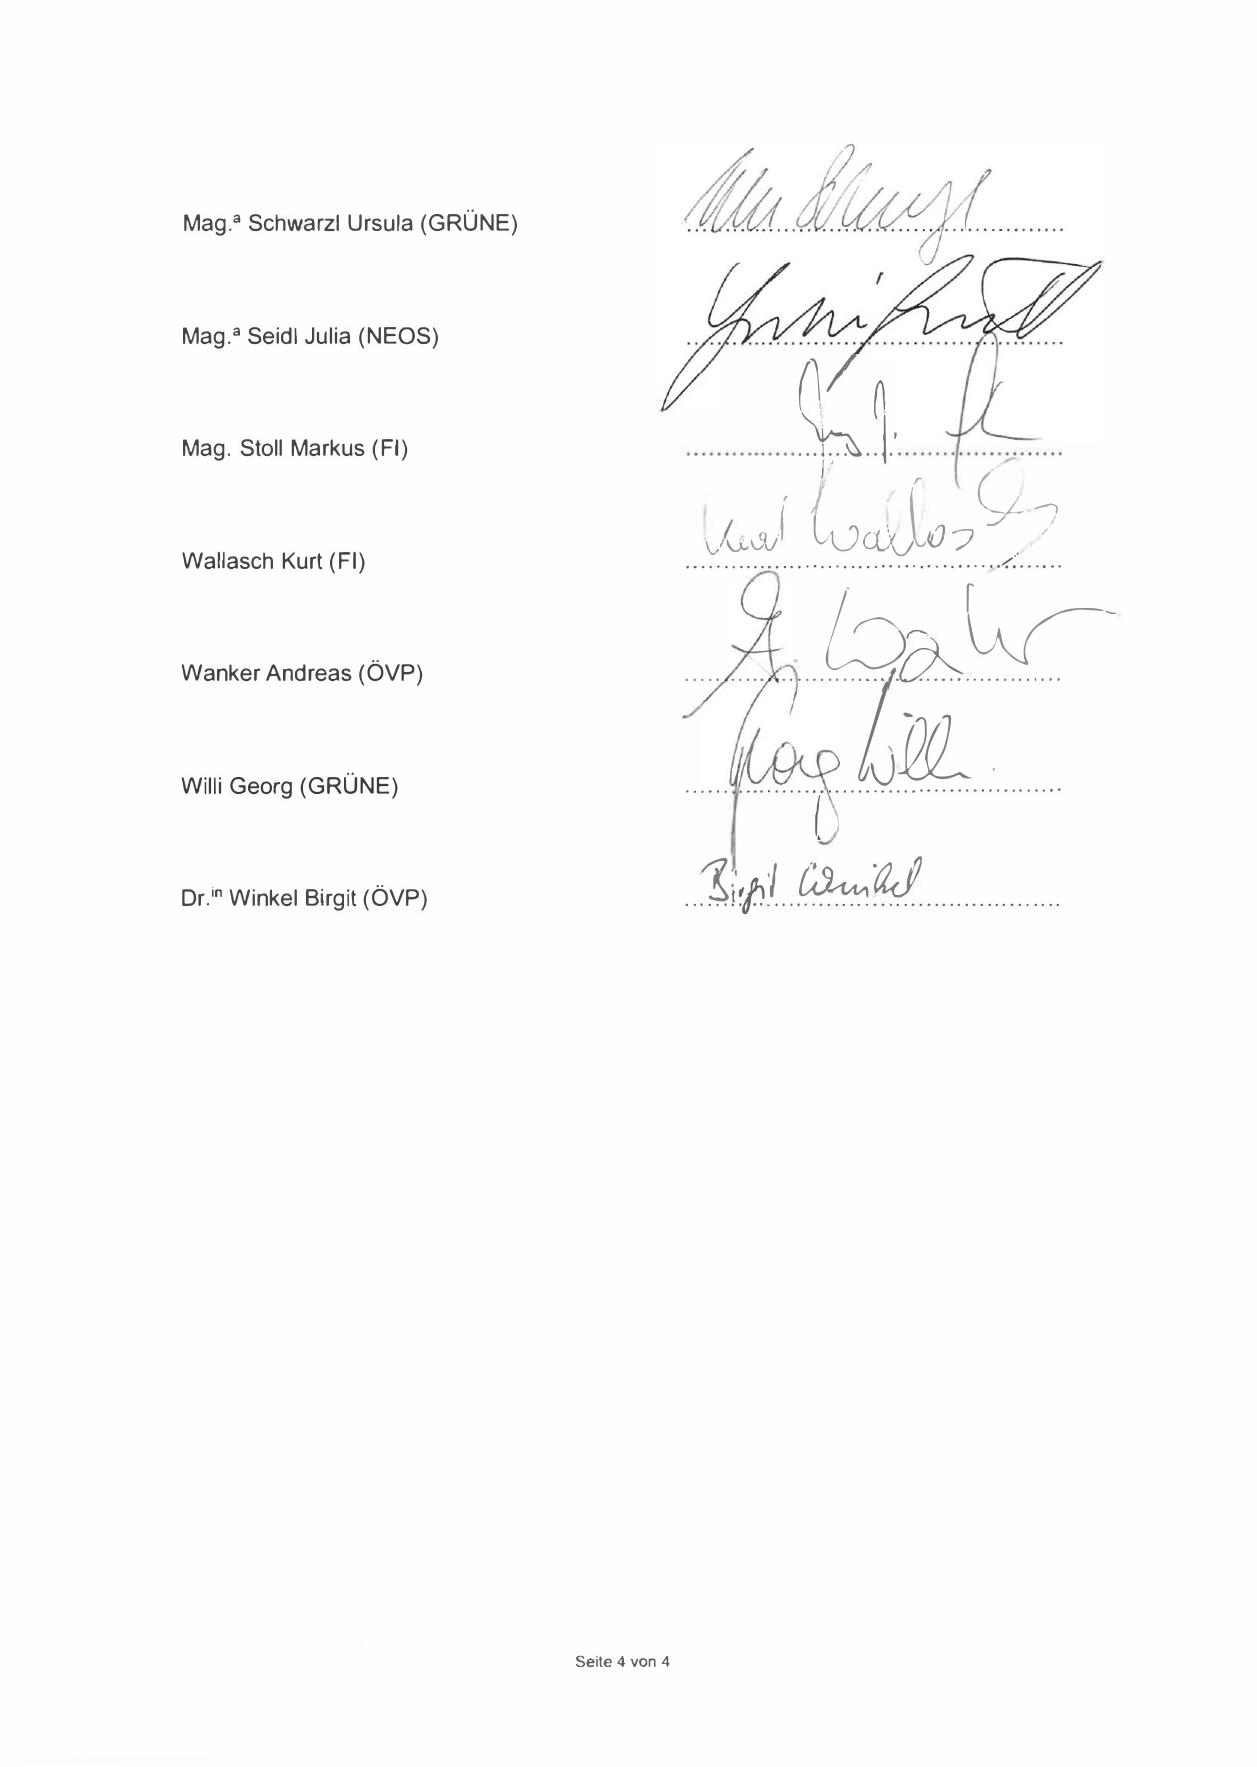 Mag.ª Schwarzl Ursula (GRÜNE)
Mag.ª Seidl Julia (NEOS)
Mag. Stoll Markus (FI)
Wallasch Kurt (FI) Kurt Wallasch
Wanker Andreas (ÖVP)
Willi Georg (GRÜNE) Georg Willi
Dr.ⁱⁿ Winkel Birgit (ÖVP) Birgit Winkel
Seite 4 von 4